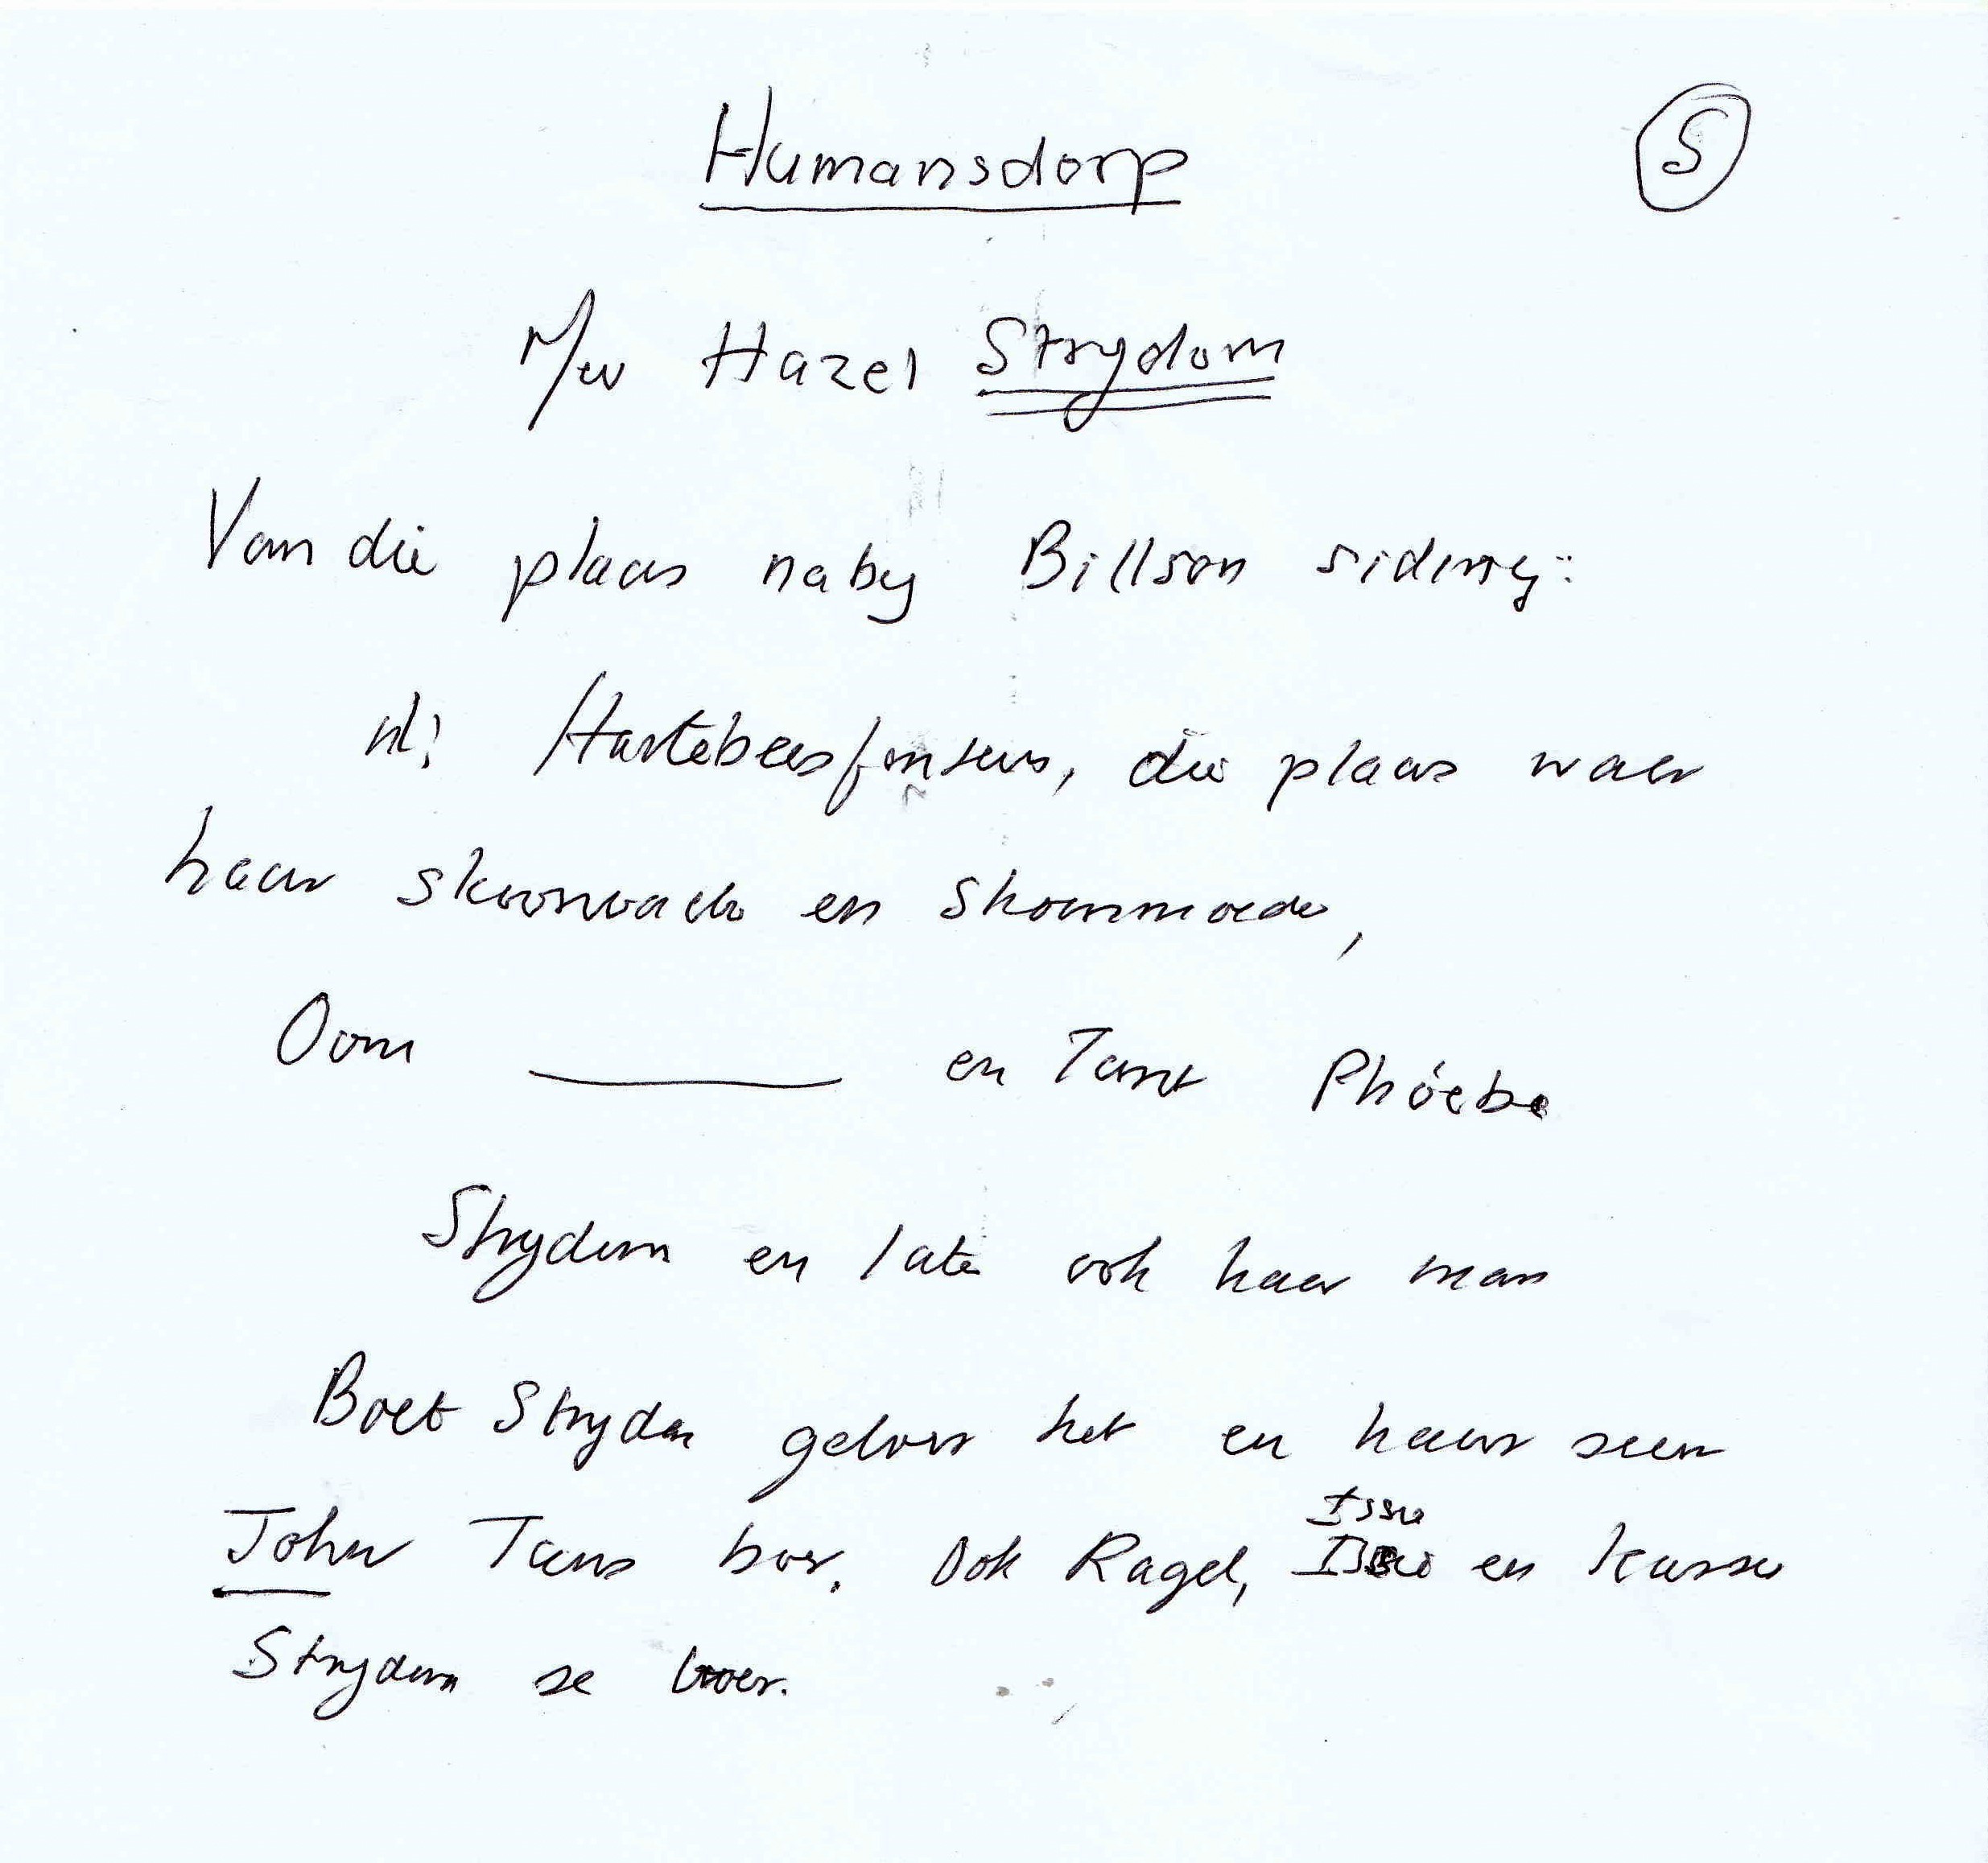 Humansdorp
S
M/ev Hazel Strydom
Van die plaas naby Billson siding:
nl: Hartebeesfontein, die plaas waar
haar skoonvader en skoonmoeder,
Oom ______ en Tant Phóebe
Strydom en later ook haar man
Boet Strydom geboer het en haar seun
John Tans boer. Ook Ragel, Issie en Kassie
Strydom se broer.